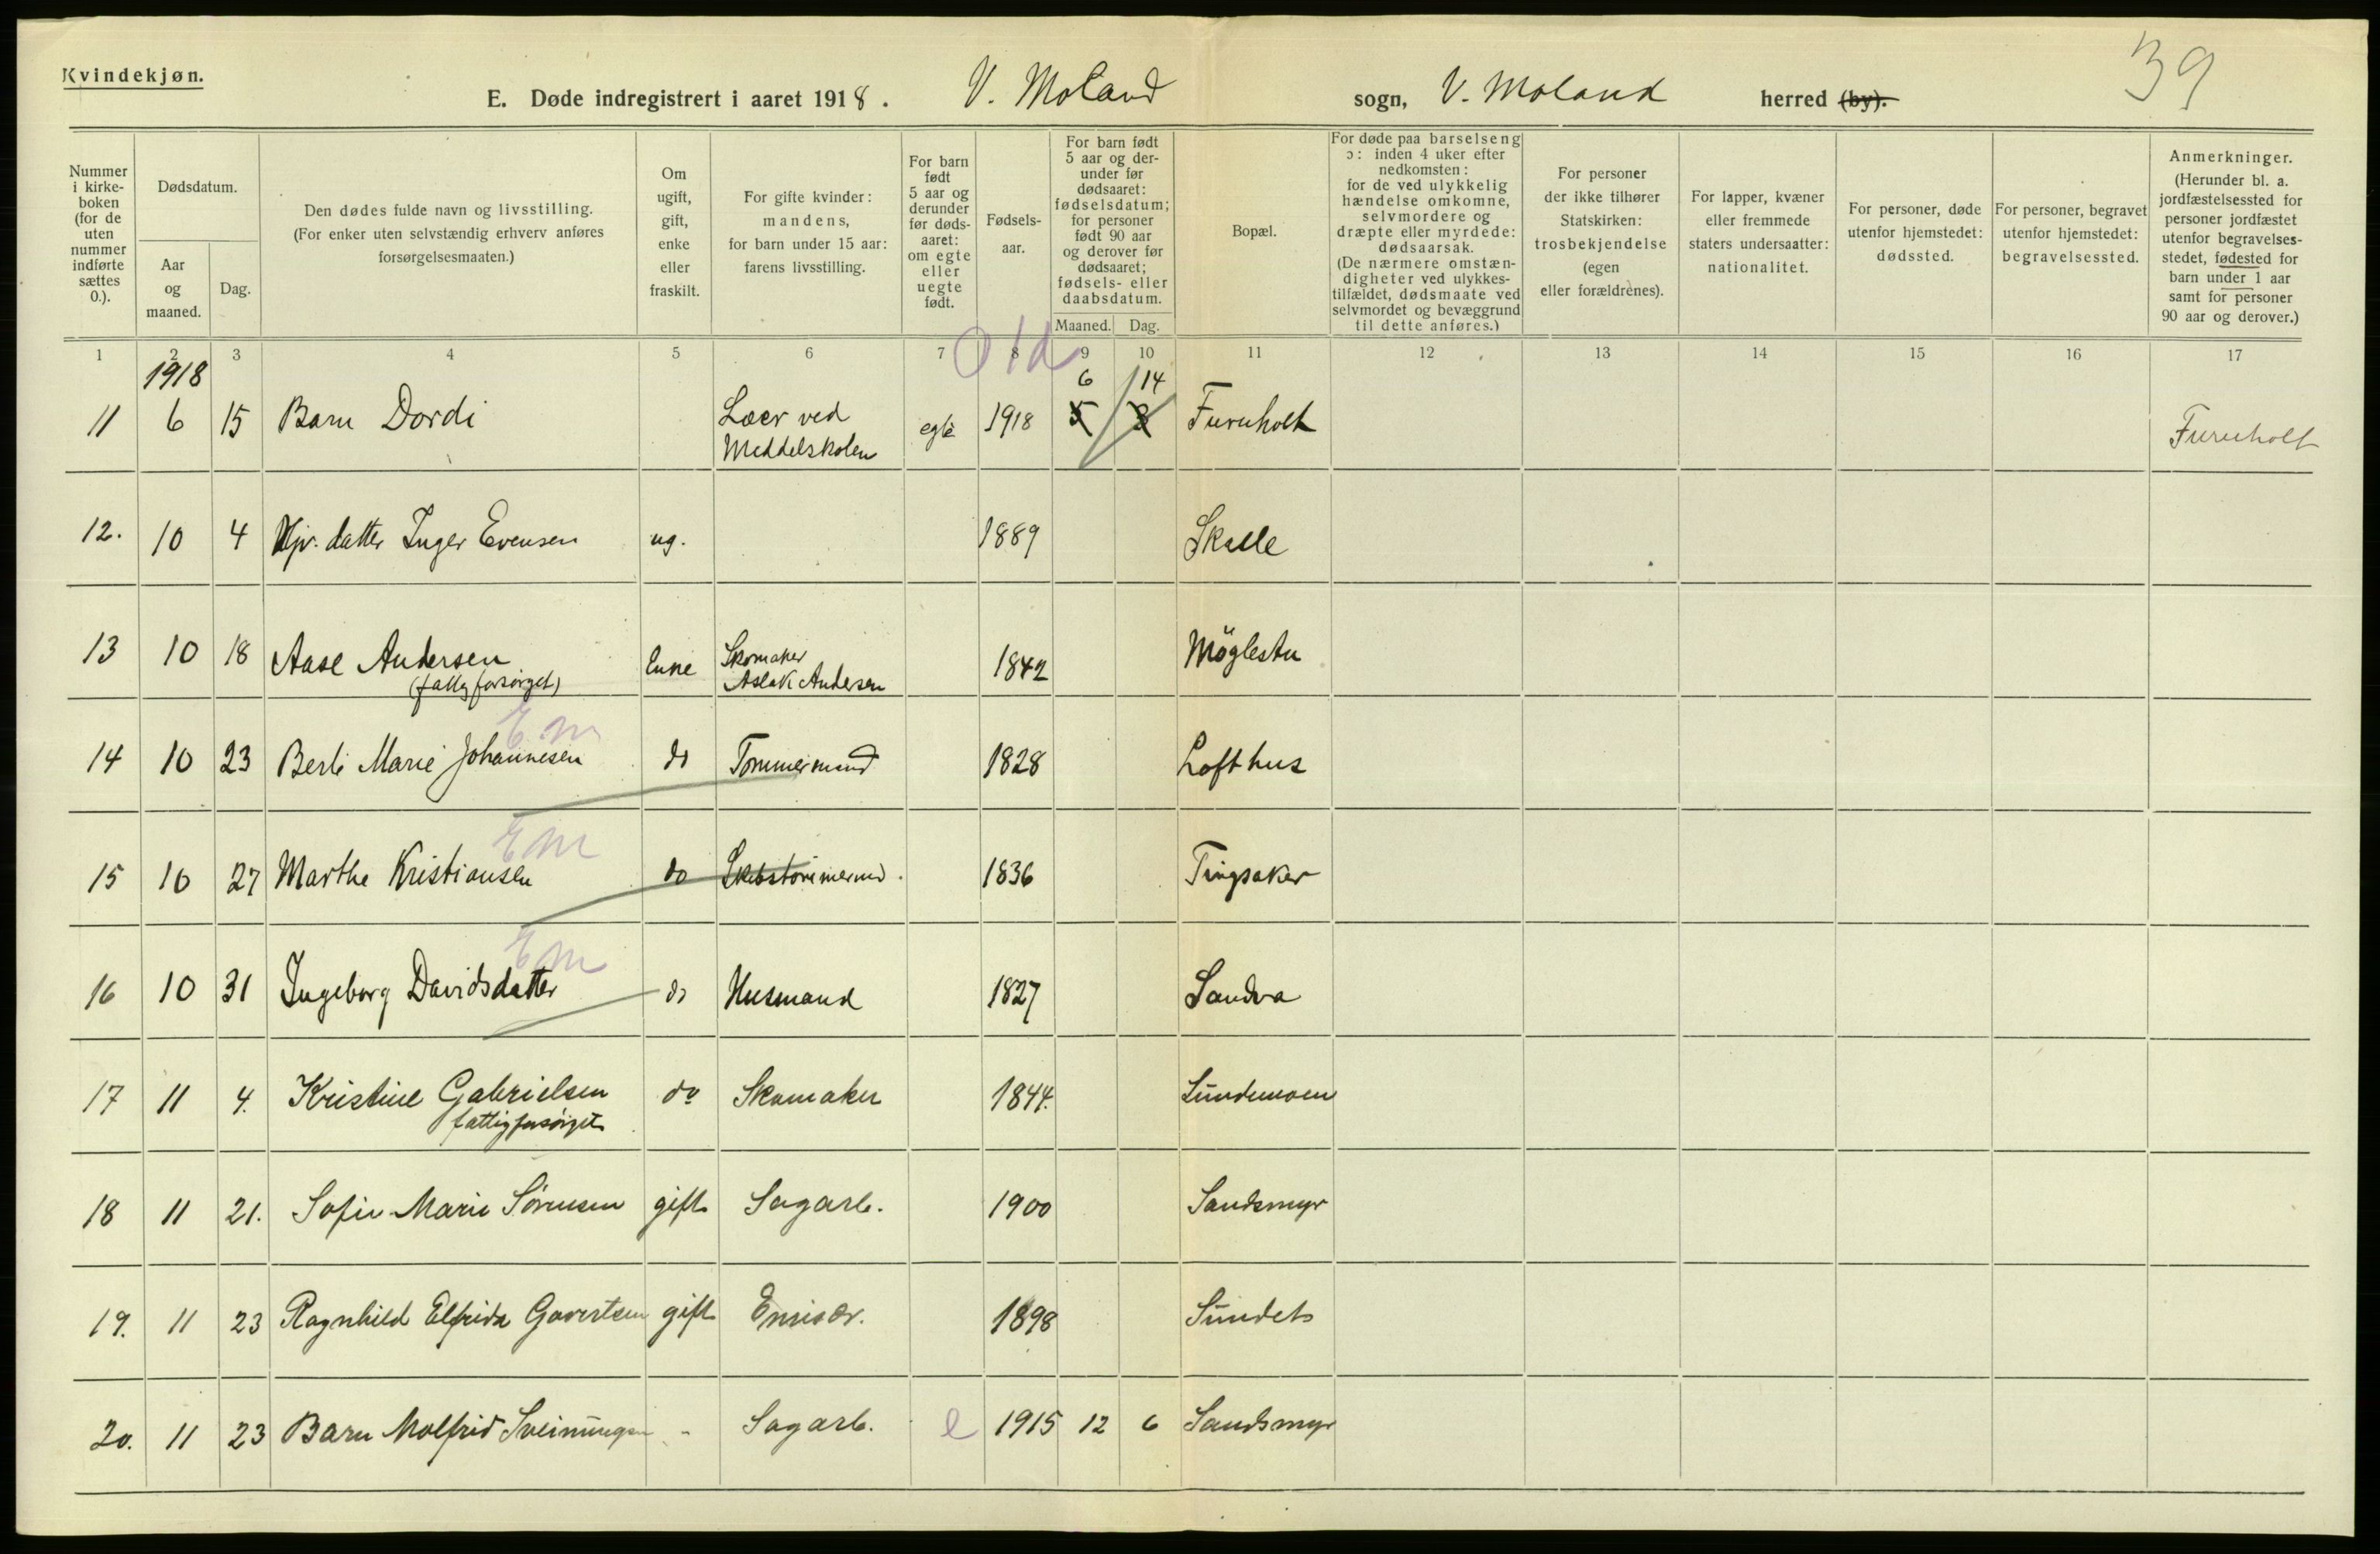 Kvindekjøn.
E. Døde indregistrert i aaret 1918. V. Moland sogn, V. Moland herred (by).
39
Nummer i kirkeboken (for de uten nummer indførte sættes 0.).
Dødsdatum.
Aar og maaned.
Dag.
Den dødes fulde navn og livsstilling.
(For enker uten selvstændig erhverv anføres forsørgelsesmaaten.)
Om ugift, gift, enke eller fraskilt.
For gifte kvinder: mandens, for barn under 15 aar: farens livsstilling.
For barn født 5 aar og derunder før dødsaaret: om egte eller uegte født.
Fødselsaar.
For barn født 5 aar og derunder før dødsaaret: fødselsdatum; for personer født 90 aar og derover før dødsaaret; fødsels- eller daabsdatum.
Maaned. Dag.
Bopæl.
For døde paa barselseng ɔ: inden 4 uker efter nedkomsten: for de ved ulykkelig hændelse omkomne, selvmordere og dræpte eller myrdede: dødsaarsak. (De nærmere omstændigheter ved ulykkestilfældet, dødsmaate ved selvmordet og bevæggrund til dette anføres.)
For personer der ikke tilhører Statskirken: trosbekjendelse (egen eller forældrenes).
For lapper, kvæner eller fremmede staters undersaatter: nationalitet.
For personer, døde utenfor hjemstedet: dødssted.
For personer, begravet utenfor hjemstedet: begravelsessted.
Anmerkninger. (Herunder bl. a. jordfæstelsessted for personer jordfæstet utenfor begravelsesstedet, fødested for barn under 1 aar samt for personer 90 aar og derover.)
1 2 3 4 5 6 7 8 9 10 11 12 13 14 15 16 17
1918 01d 6 14
11 6 15 Barn Dordi Lær ved Meddelskolen egte 1918 5 3 Furuholt Furuholt
12. 10 4 datter Inger Evensen ug. 1889 Skalle
13 10 18 Aase Andersen (fattigforsørget) Enke Skomaker Aslak Andersen 1842 Møglestu
Em
14 10 23 Berte Marie Johannesen do Tømmermand 1828 Lofthus
Em
15 10 27 Marthe Kristiansen do Skibstømmermd. 1836 Tingsaker
Em
16 10 31 Ingeborg Davidsdatter do Husmand 1827 Sandva
17 11 4. Kristine Gabrielsen fattigforsørget do Skomaker 1844. Lundemoen
18 11 21. Sofie Marie Sørensen gift Sagarb. 1900 Sandsmyr
19. 11 23 Ragnhild Elfrida Govertsen gift Emisær. 1898 Sundet
20. 11 23 Barn Molfrid Sveinungsen - Sagarb. e 1915 12 6 Sandsmyr